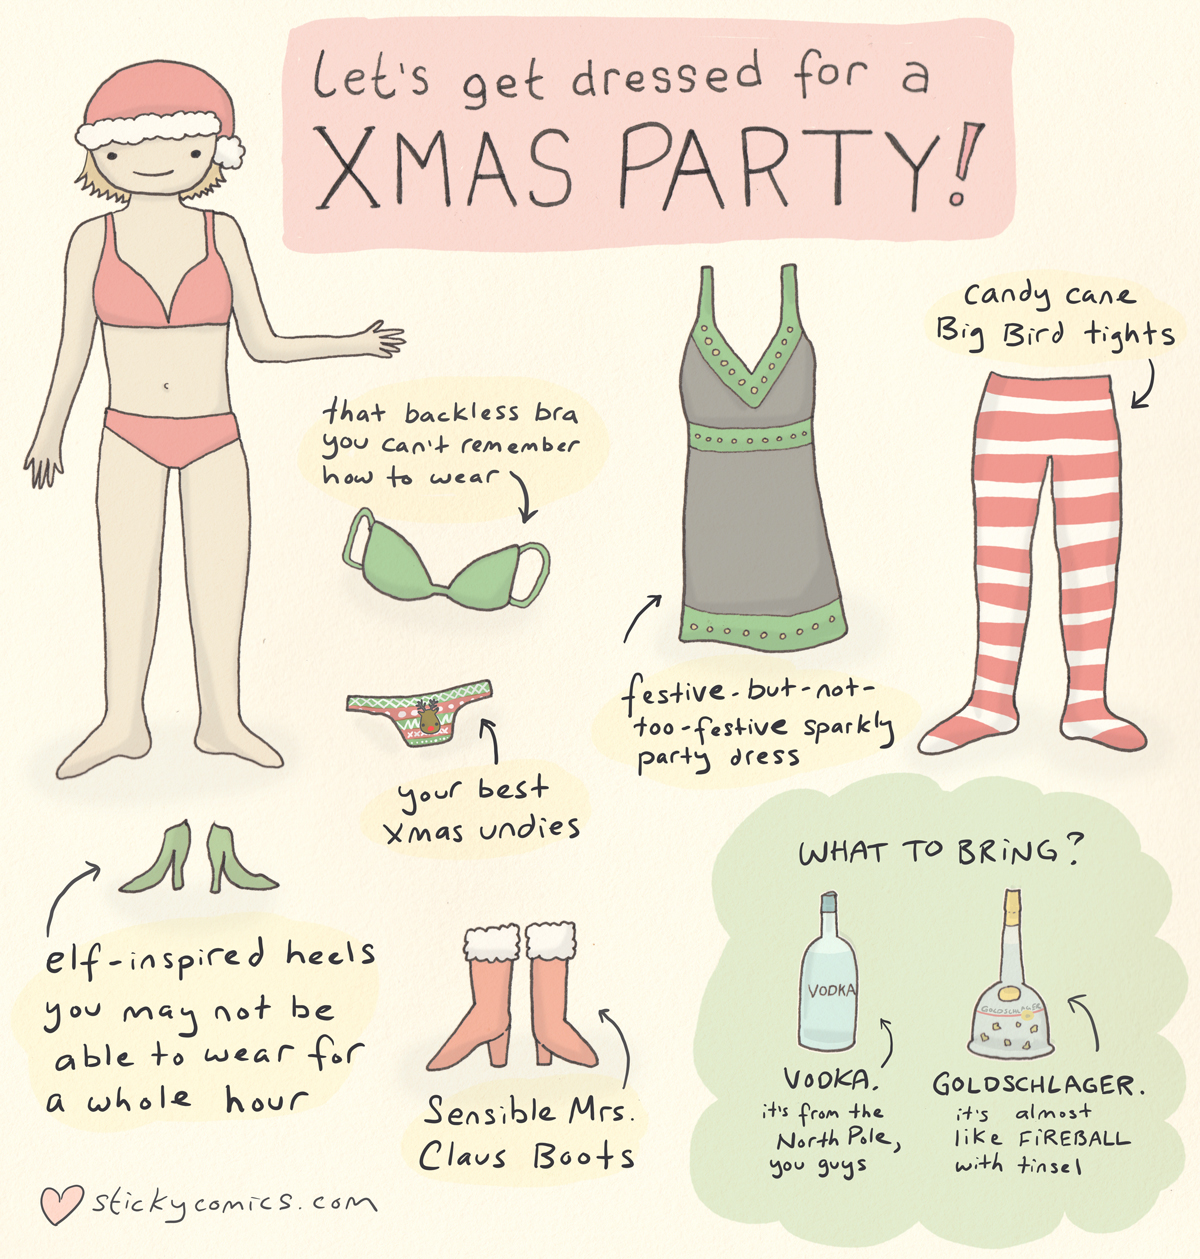 Let's get dressed for a
XMAS PARTY!
candy cane
Big Bird tights
that backless bra
you can't remember
how to wear
festive-but-not-
too-festive sparkly
party dress
your best
xmas undies
elf-inspired heels
you may not be
able to wear for
a whole hour
Sensible Mrs.
Claus Boots
WHAT TO BRING?
VODKA
GOLDSCHLAGER
VODKA.
it's from the
North Pole,
you guys
GOLDSCHLAGER.
it's almost
like FIREBALL
with tinsel
stickycomics.com